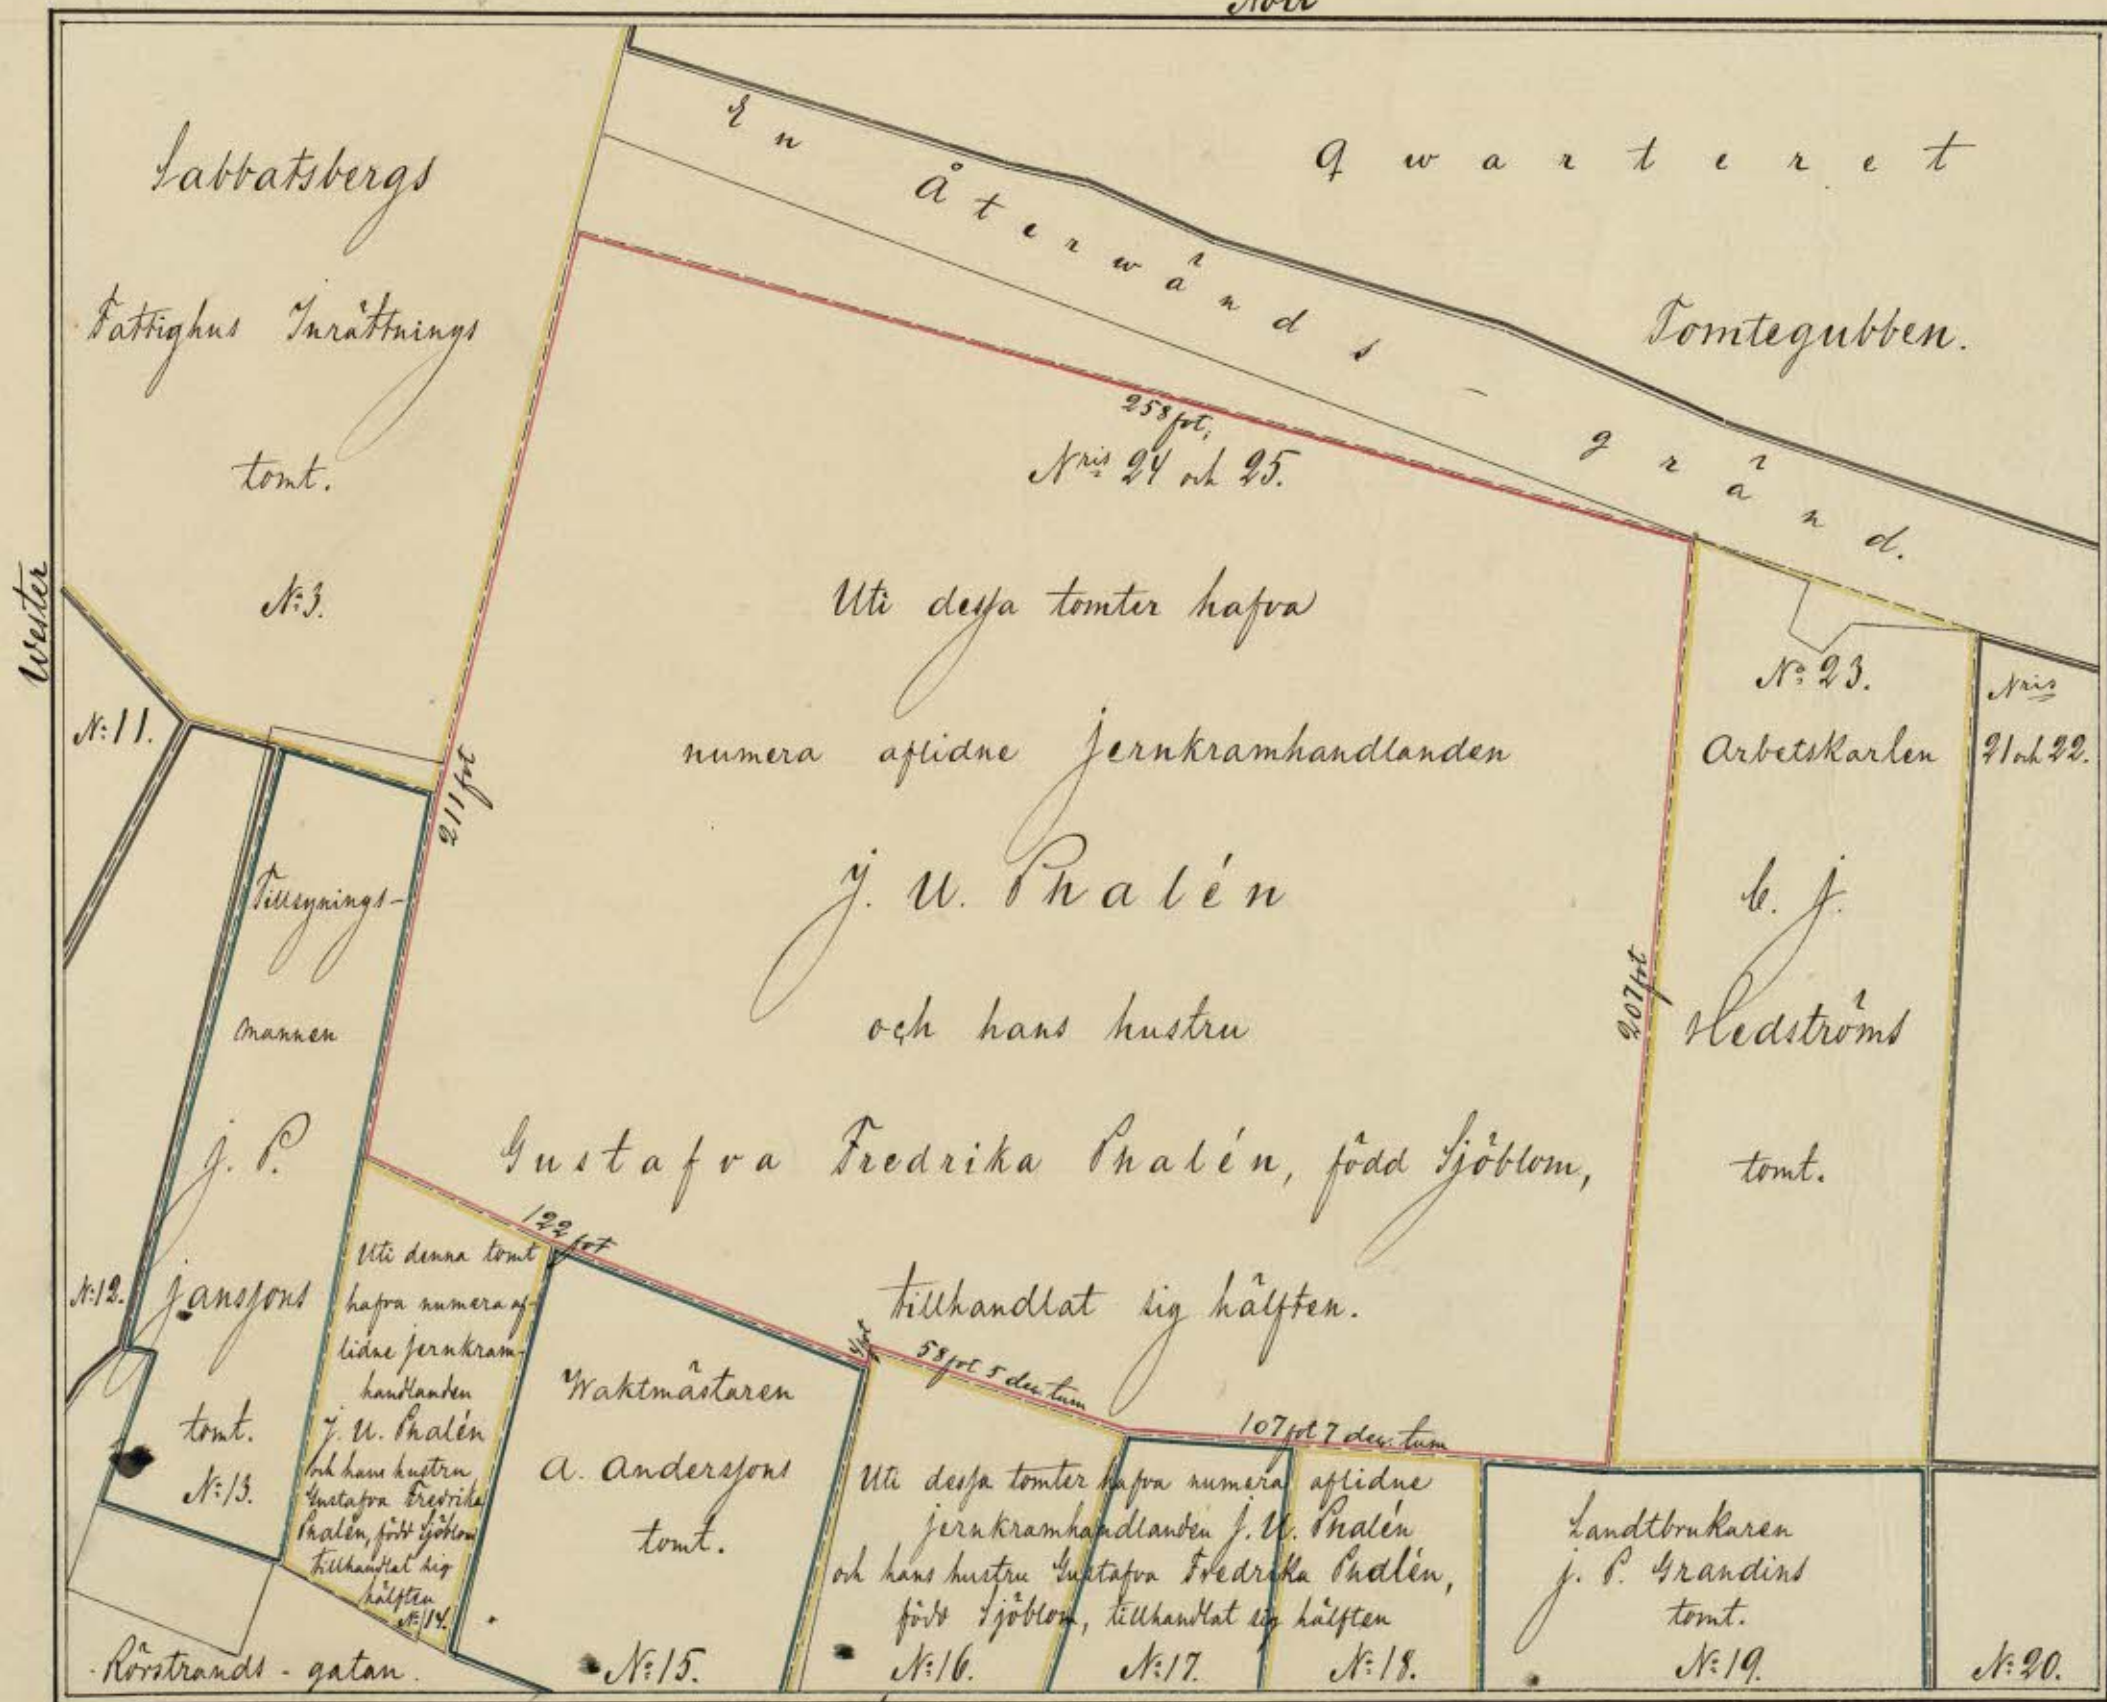 Norr
Sabbatsbergs
Fattighus Inrättnings
tomt.
N:3.
En Återwänds-gränd.
Qwarteret
Tomtegubben.
Wester
258 fot.
Nris 24 och 25.
Uti dessa tomter hafva
numera aflidne Jernkramhandlanden
J. U. Phalén
och hans hustru
Gustafva Fredrika Phalén, född Sjöblom,
tillhandlat sig hälften.
211 fot
207 fot
122 fot
4 fot
58 fot 5 dec. tum
107 fot 7 dec. tum
N:11.
N:12.
Tillsynings-
mannen
J. P.
Janssons
tomt.
N:13.
Uti denna tomt
hafva numera af-
lidne Jernkram-
handlanden
J. U. Phalén
och hans hustru
Gustafva Fredrika
Phalén, född Sjöblom
tillhandlat sig
hälften
N:14.
Waktmästaren
A. Anderssons
tomt.
N:15.
Uti dessa tomter hafva numera aflidne
jernkramhandlanden J. U. Phalén
och hans hustru Gustafva Fredrika Phalén,
född Sjöblom, tillhandlat sig hälften
N:16.
N:17.
N:18.
Landtbrukaren
J. P. Grandins
tomt.
N:19.
N:20.
N:23.
Arbetskarlen
C. J.
Hedströms
tomt.
Nris
21 och 22.
Rörstrands-gatan.